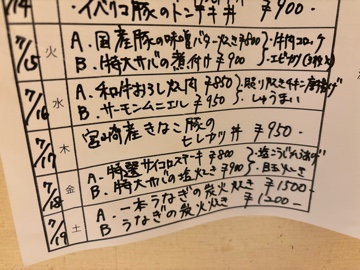 7/14 ・イベリコ豚のトンテキ丼 ¥900-
7/15 火 A. 国産豚の味噌バター炊き ¥800 ・牛肉コロッケ
B. 特大サバの煮付け ¥900 ・エビカツ
7/16 水 A. 和牛おろし炊肉 ¥850 ・照り炊きチキン唐揚げ
B. サーモンムニエル ¥950 ・しゅうまい
7/17 木 宮崎産きなこ豚の
ヒレカツ丼 ¥950-
7/18 金 A. 特選サイコロステーキ ¥800 ・塩
B. 特大サバの塩炊き ¥900 ・目玉炊き
7/19 土 A. 一本うなぎの炭火炊き ¥1500-
B うなぎの炭火炊き ¥1200-